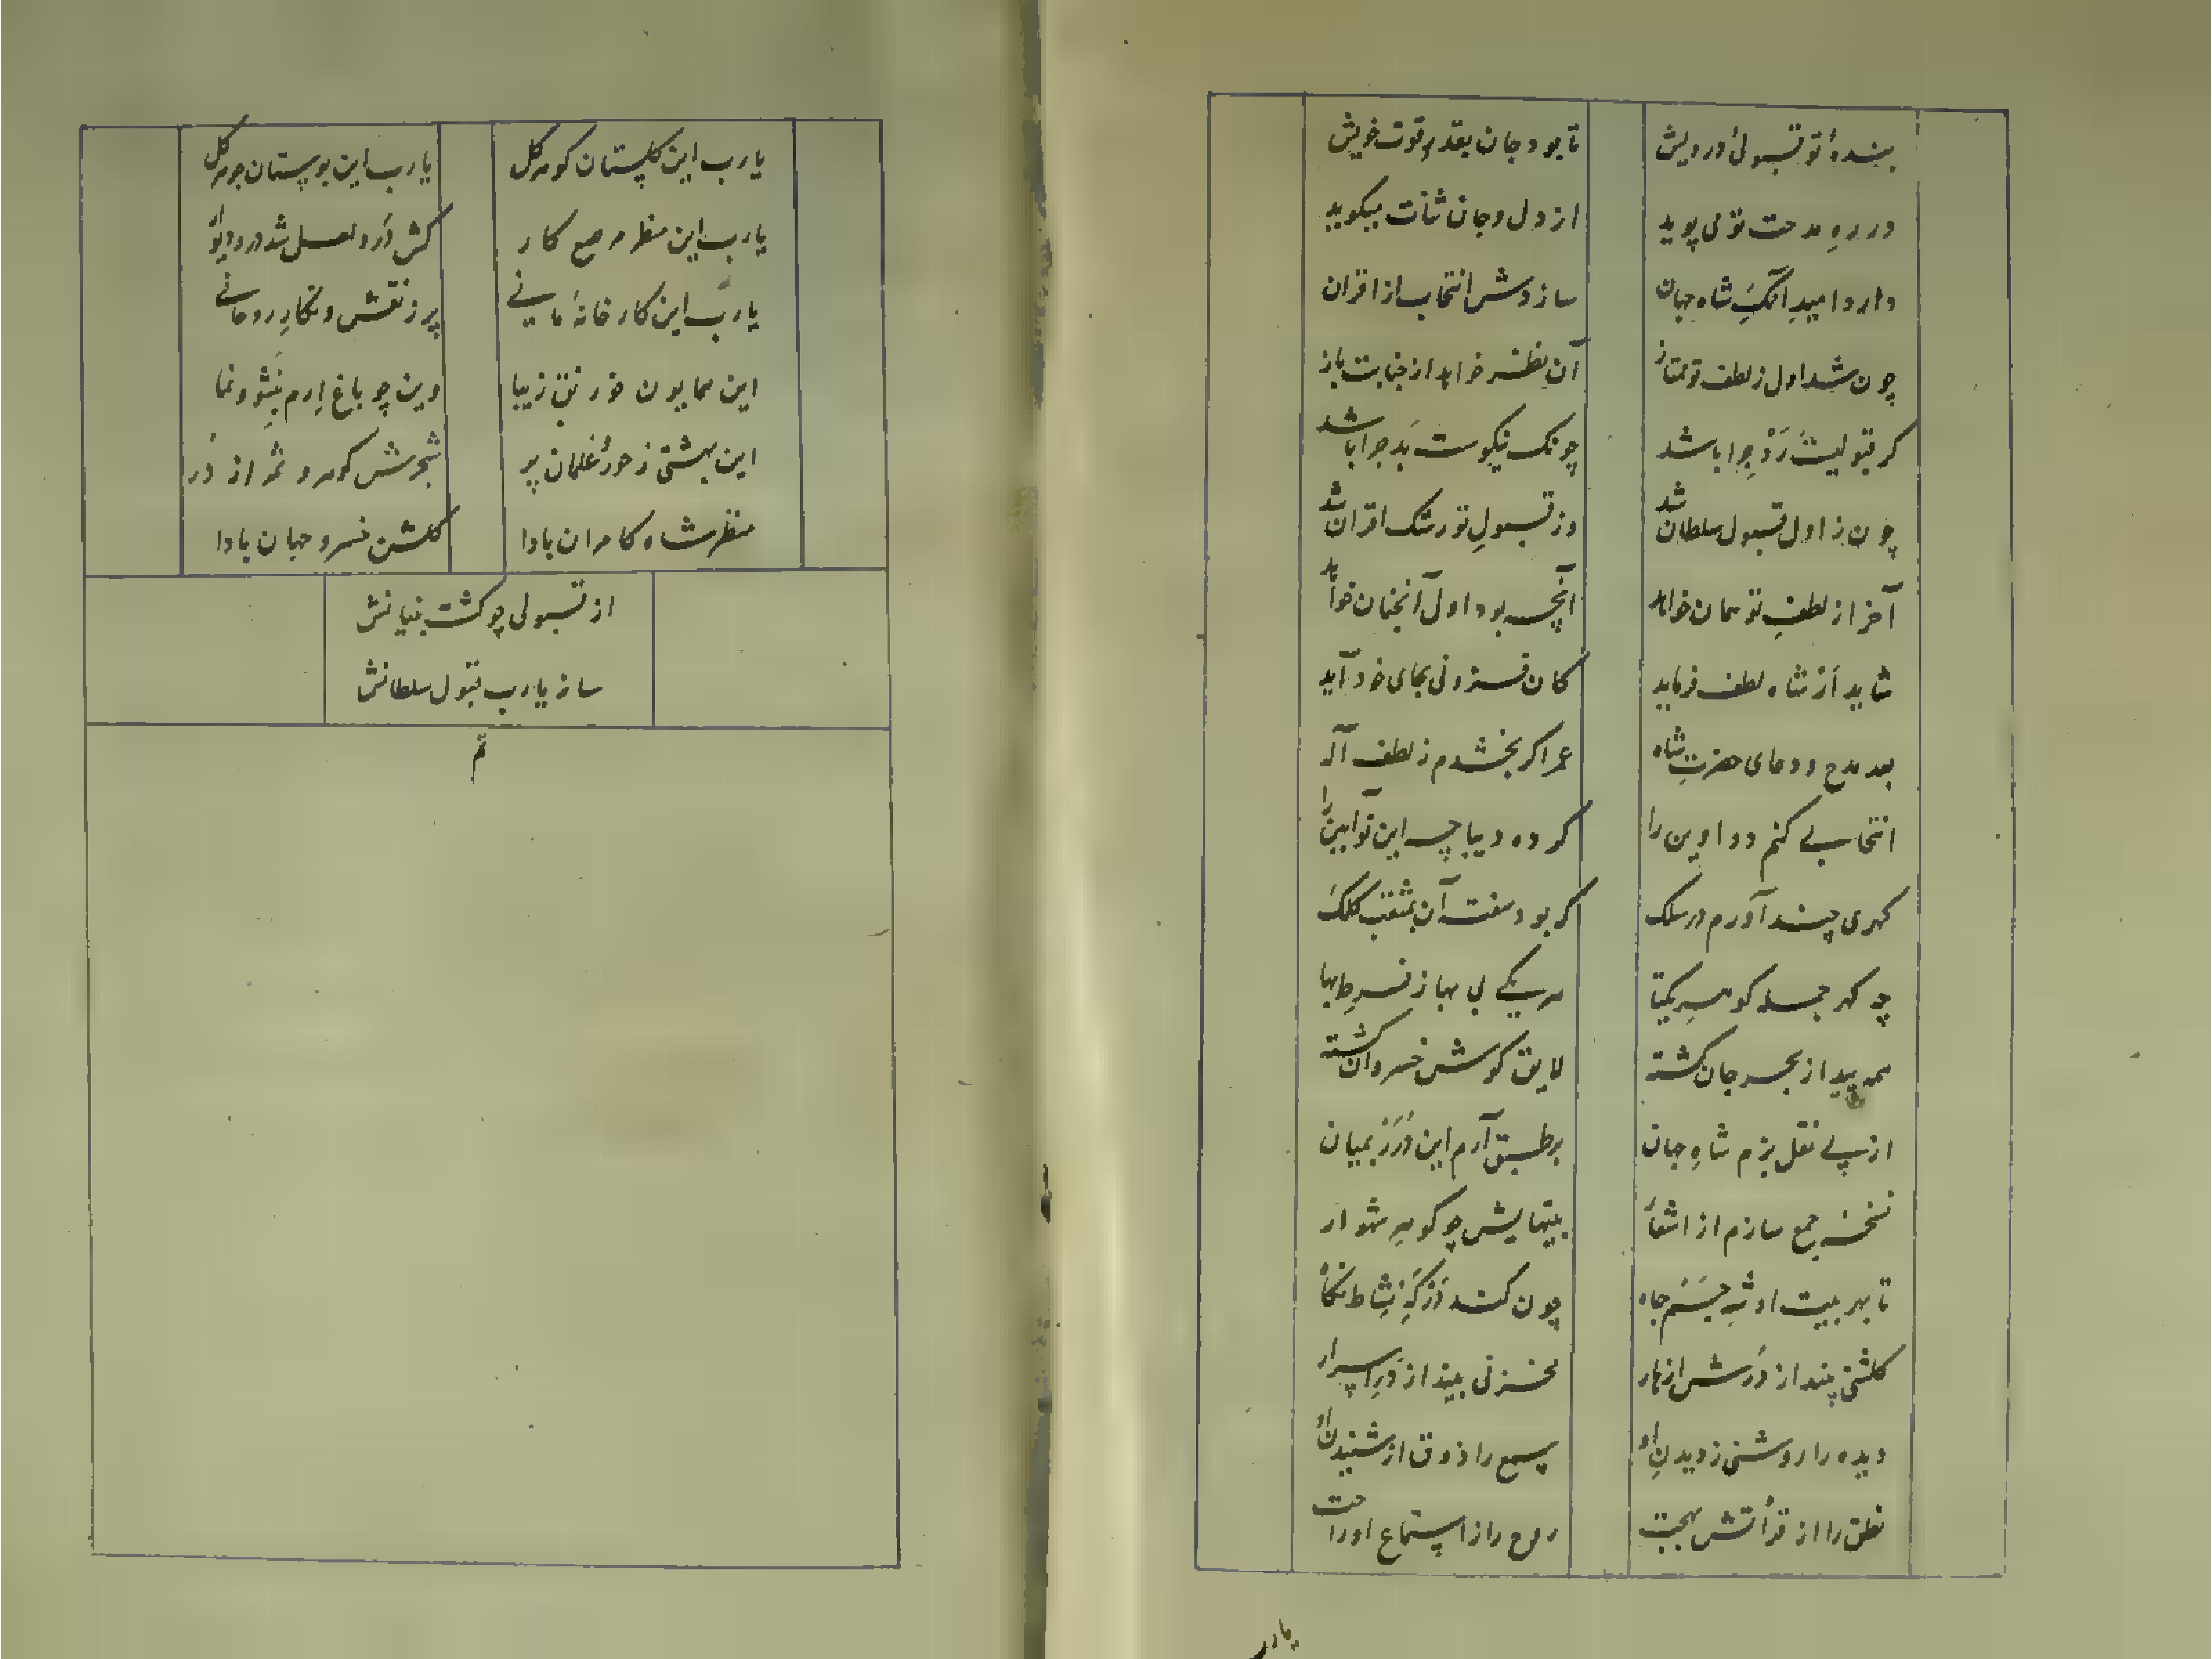 بندهٔ تو قبولئ درویش تا بود جان بقدر قوت خویش
در ره مدحت تو می پوید از دل و جان ثنات میکوید
دارد امید آنک شاه جهان سازدش انتخاب از اقران
چون شد اول ز لطف تو ممتاز آن نظر خواهد از جنابت باز
کر قبولیت رد چرا باشد چونک نیکوست بد چرا باشد
چون ز اول قبول سلطان شد وز قبول تو رشک اقران شد
آخر از لطف تو همان خواهد آنچه بود اول آنچنان خواهد
شاید ار شاه لطف فرماید کان فزونی بجای خود آید
بعد مدح و دعای حضرت شاه عمر اکر بخشدم ز لطف آله
انتخابی کنم دواوین را کرده دیباچه این قوانین را
کهری چند آورم در سلک که بود سفت آن بمثقب کلک
چه کهر جمله کوهر یکتا هر یکی بی بها ز فرط بها
همه پیدا ز بحر جان کشته لایق کوش خسروان کشته
از پی نقل بزم شاه جهان بر طبق آرم این درر بمیان
نسخهٔ جمع سازم از اشعار بیتهایش چو کوهر شهوار
تا بهر بیت او شه جم جاه چون کند از کز نشاط نکاه
کلشنی بیند از درش ازهار مخزنی بیند از در اسرار
دیده را روشنی ز دیدن او سمع را ذوق از شنیدن او
نطق را از قرأتش بهجت روح را ز استماع او راحت
یارب
یارب این کلستان کوهر کل یارب این بوستان جوهر کل
یارب این منظر مرصع کار کش در و لعل شد در و دیوار
یارب این کارخانهٔ مانی پر ز نقش و نکار روحانی
این همایون خورنق زیبا وین چو باغ ارم بنشو و نما
این بهشتی ز حور و غلمان پر شجرش کوهر و ثمر از در
منظر شاه کامران بادا کلشن خسرو جهان بادا
از قبولی چو کشت بنیانش
ساز یارب قبول سلطانش
تم